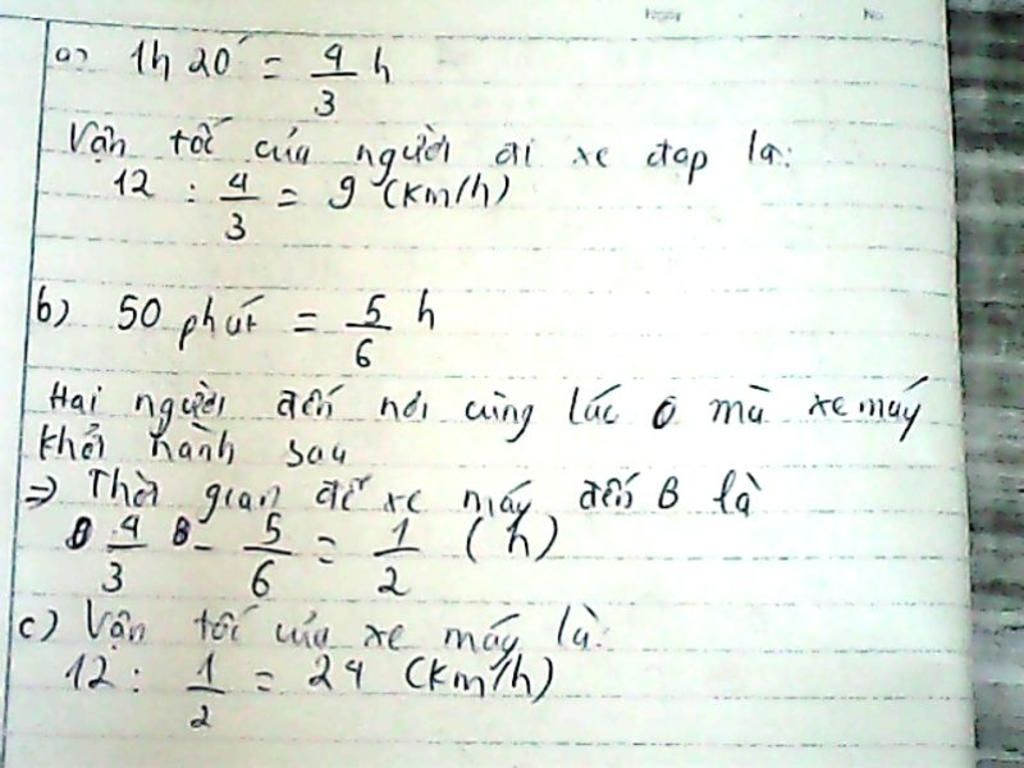 Ngày No
a) 1h 20' = 4/3 h
Vận tốc của người đi xe đạp là:
12 : 4/3 = 9 (km/h)
b) 50 phút = 5/6 h
Hai người đến nơi cùng lúc mà xe máy
khởi hành sau
=> Thời gian để xe máy đến B là
4/3 - 5/6 = 1/2 (h)
c) Vận tốc của xe máy là:
12 : 1/2 = 24 (km/h)